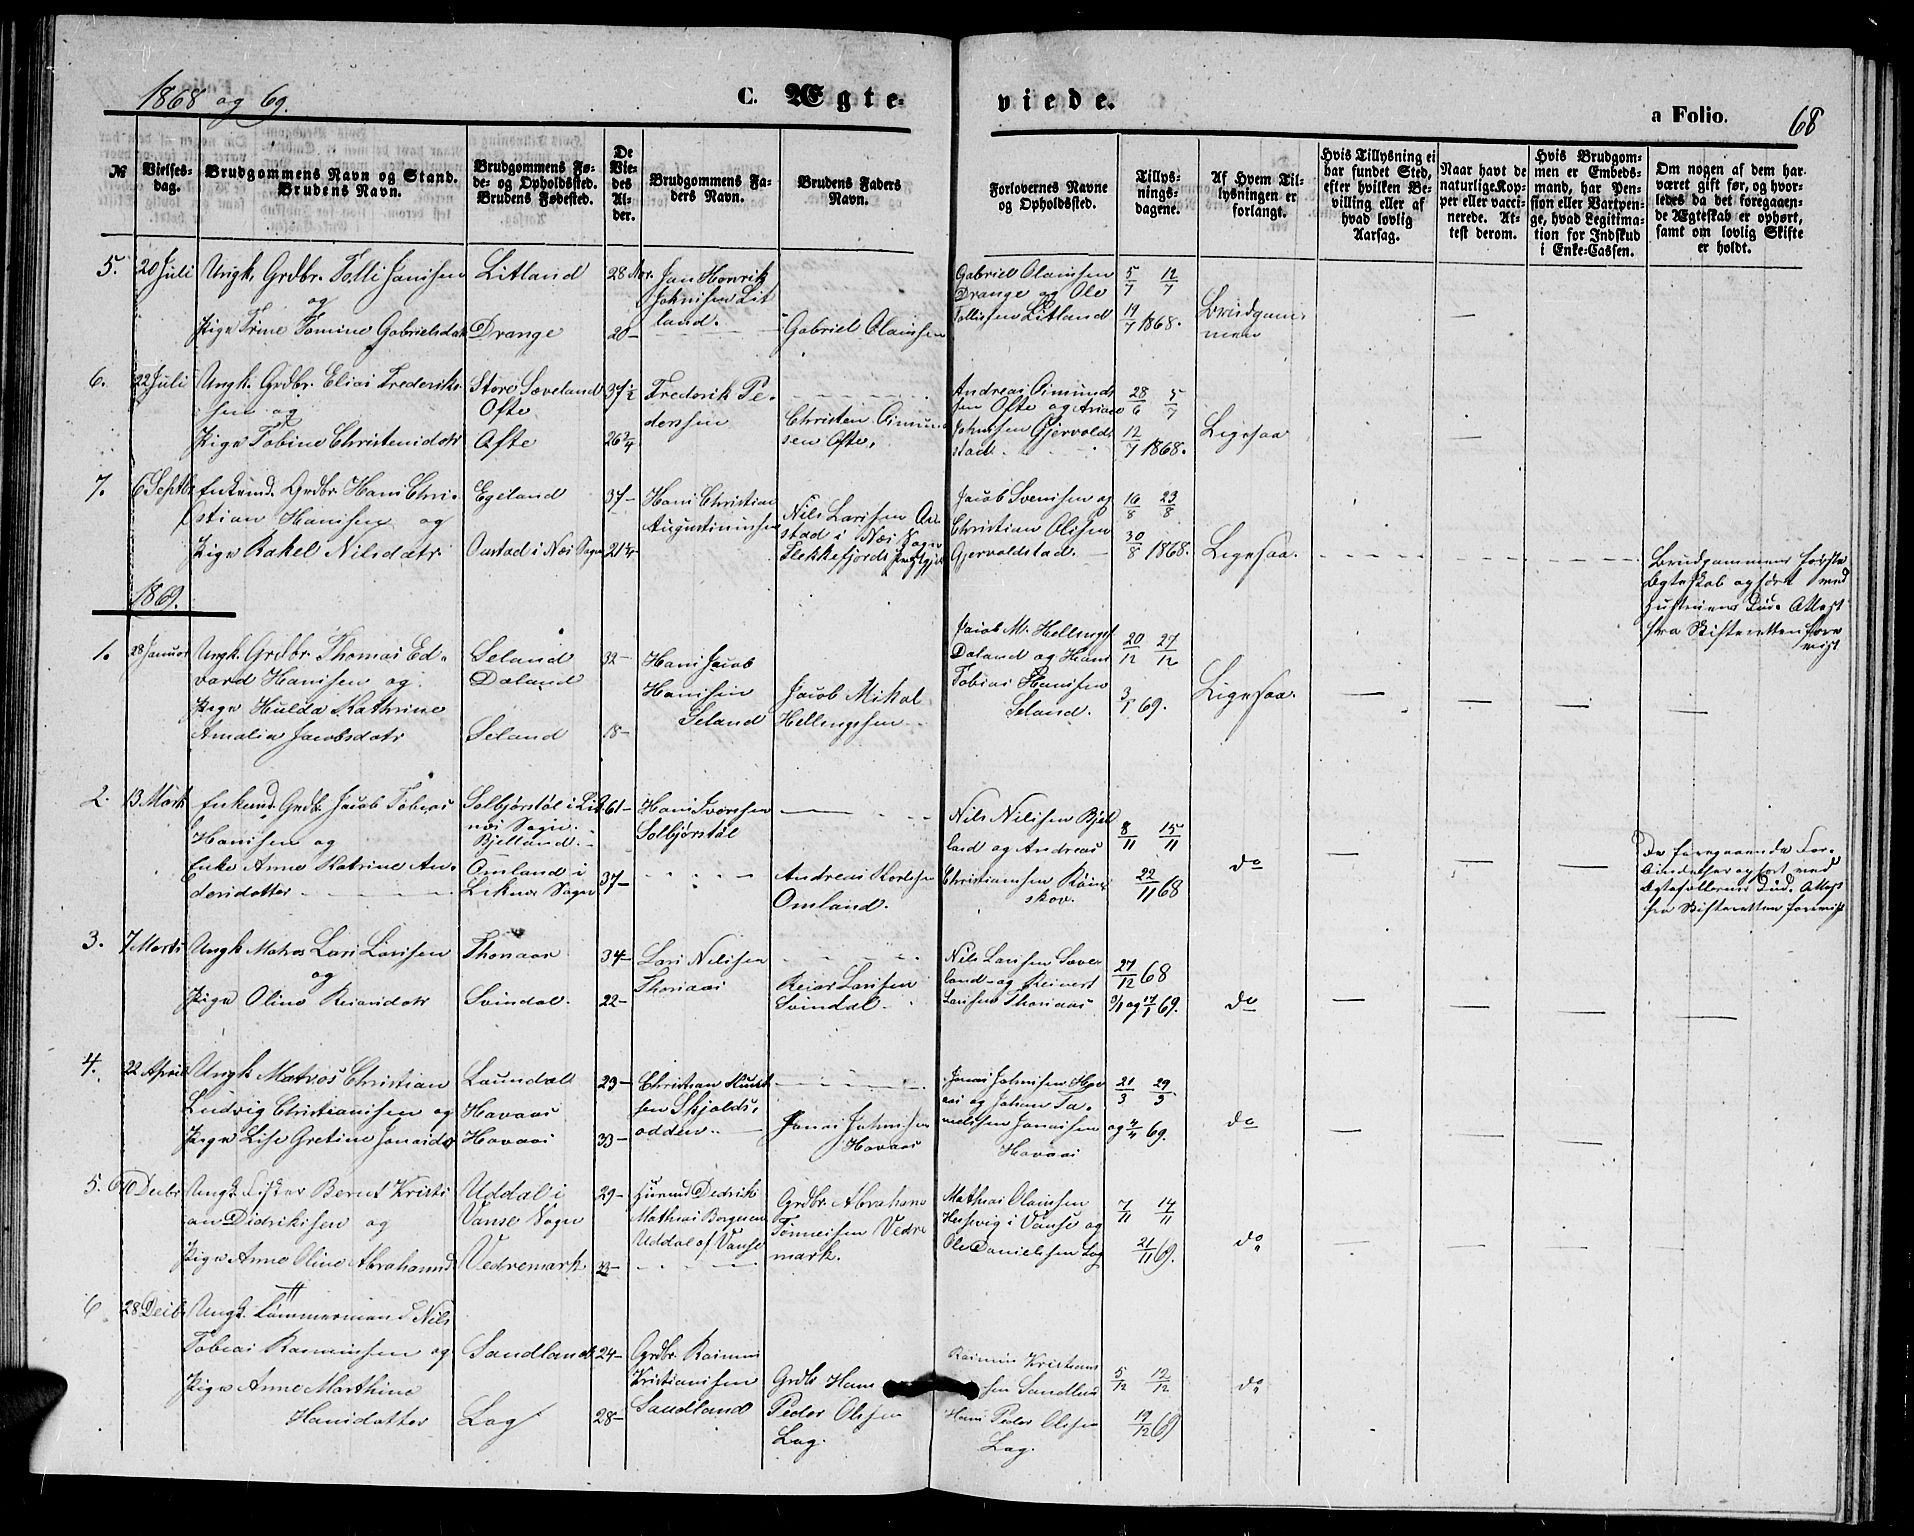 1868 og 69.
C. Ægte-
viede.
a Folio.
68
№
Vielses-
dag.
Brudgommens Navn og Stand.
Brudens Navn.
Brudgommens Fø-
de- og Opholdssted.
Brudens Fødested.
De
Vie-
des
Al-
der.
Brudgommens Fa-
ders Navn.
Brudens Faders
Navn.
Forlovernes Navne
og Opholdssted.
Tillys-
nings-
dagene.
Af Hvem Til-
lysningen er
forlangt.
Hvis Tillysning ei
har fundet Sted,
efter hvilken Be-
villing eller af
hvad lovlig
Aarsag.
Naar havt de
naturlige Kop-
per eller vacci-
nerede. At-
test derom.
Hvis Brudgom-
men er Embeds-
mand, har Pen-
sion eller Vartpen-
ge, hvad Legitima-
tion for Indskud
i Enke-Cassen.
Om nogen af dem har
været gift før, og hvor-
ledes da det foregaaen-
de Ægteskab er ophørt,
samt om lovlig Skifte
er holdt.
5. 20 Juli
Ungk. Grdbr. Tolli Jansen
og
Pige Trine Tomine Gabrielsdatr
Litland
Drange
28 Aar.
20-
Jan Henrik
Johnsen Lit
land.
Gabriel Olansen
Gabriel Olansen
Drange og Ole
Tollisen Litland
5/7 12/7
19/7 1868.
Brudgom-
men
6. 22 Juli
Ungk. Grdbr. Elias Frederik-
sen og
Pige Tobine Christensdatr
Store Sæveland
Ofte
Ofte
37½
26¾
Frederik Pe-
dersen
Christen Osmund
sen Ofte.
Andreas Osmund
sen Ofte og
Johnsen Gjervold
stad.
28/6 5/7
12/7 1868.
Ligesaa
7. 6 Septbr
Enkemd. Grdbr. Hans Chri-
stian Hansen og
Pige Rakel Nilsdatr
Egeland
Oustad i Næs Sogn
37-
Hans Christian
Augustinusen
Nils Larsen Ou
stad i Næs Sogn
Flekkefjords Præstgjd
Jacob Svensen og
Christian Olsen
Gjervoldstad.
16/8 23/8
30/8 1868.
Ligesaa.
Brudgommens første
Ægteskab ophørt ved
Hustruens Død. Attest
fra Skifteretten fore
vist
1869.
1. 28 Januar
Ungk. Grdbr. Thomas Ed-
vard Hansen og
Pige Hulda Kathrine
Amalia Jacobsdatr
Seland
Døland
Seland
32-
18-
Hans Jacob
Hansen
Seland
Jacob Mikal
Hellingsen
Jacob M. Hellings
Døland og Hans
Tobias Hansen
Seland.
20/12 27/12
3/1 69.
Ligesaa.
2. 13 Marts
Enkemd. Grdbr Jacob Tobias
Hansen og
Enke Anne Katrine An-
dersdatter
Solbjørstøl i Lik
næs Sogn.
Bjelland.
Omland i
Liknæs Sogn
61-
37-
Hans Iversen
Solbjørstøl
Andreas Korlesen
Omland.
Nils Nilsen Bjel
land og Andreas
Christiansen Røine
skov.
8/11 15/11
22/11 68
do
De foregaaende For-
bindelser ophørt ved
Ægtefællernes Død. Attest
fra Skifteretten forevist
3. 7 Marts
Ungk Matros Lars Larsen
og
Pige Oline Reiersdatr
Thoraas
Svindal.
34-
22-
Lars Nilsen
Thoraas
Reier Larsen
Svindal.
Nils Larsen Sæve
land og Reinert
Larsen Thoraas
27/12 68
3/1 og 17/1 69.
do
4. 22 April
Ungk Matros Christian
Ludvig Christiansen og
Pige Lise Gretine Jonasdr
Laundal
Havaas
Havaas
23-
33-
Christian Knut
sen Skjolds-
odden.
Jonas Johnsen
Havaas
Jonas Johnsen Hav
aas og Johan Da-
nielsen Jonassen
Havaas
21/3 29/3
og 4/4 69.
do
5. 6 Decbr
Ungk. Fisker Bernt Kristi
an Didriksen og
Pige Anne Oline Abrahamsd
Uddal i
Vanse Sogn
Vedremark
29-
23-
Huusmd Didrik
Mathias Borgesen
Uddal af Vanse
Grdbr. Abraham
Tønnesen Vedre
mark.
Mathias Olansen
Hesvig i Vanse og
Ole Danielsen Log
7/11 14/11
21/11 69.
do
6 28 Decbr
Ungk. Tømmermand Nils
Tobias Rasmussen og
Pige Anne Marthine
Hansdatter
Sandland
Log
24-
28-
Grdbr. Rasmus
Kristiansen
Sandland
Grdb Hans
Peder Olsen
Log.
Rasmus Kristian
sen Sandland
Hans Peder Olsen
Log.
5/12 12/12
19/12 69
do